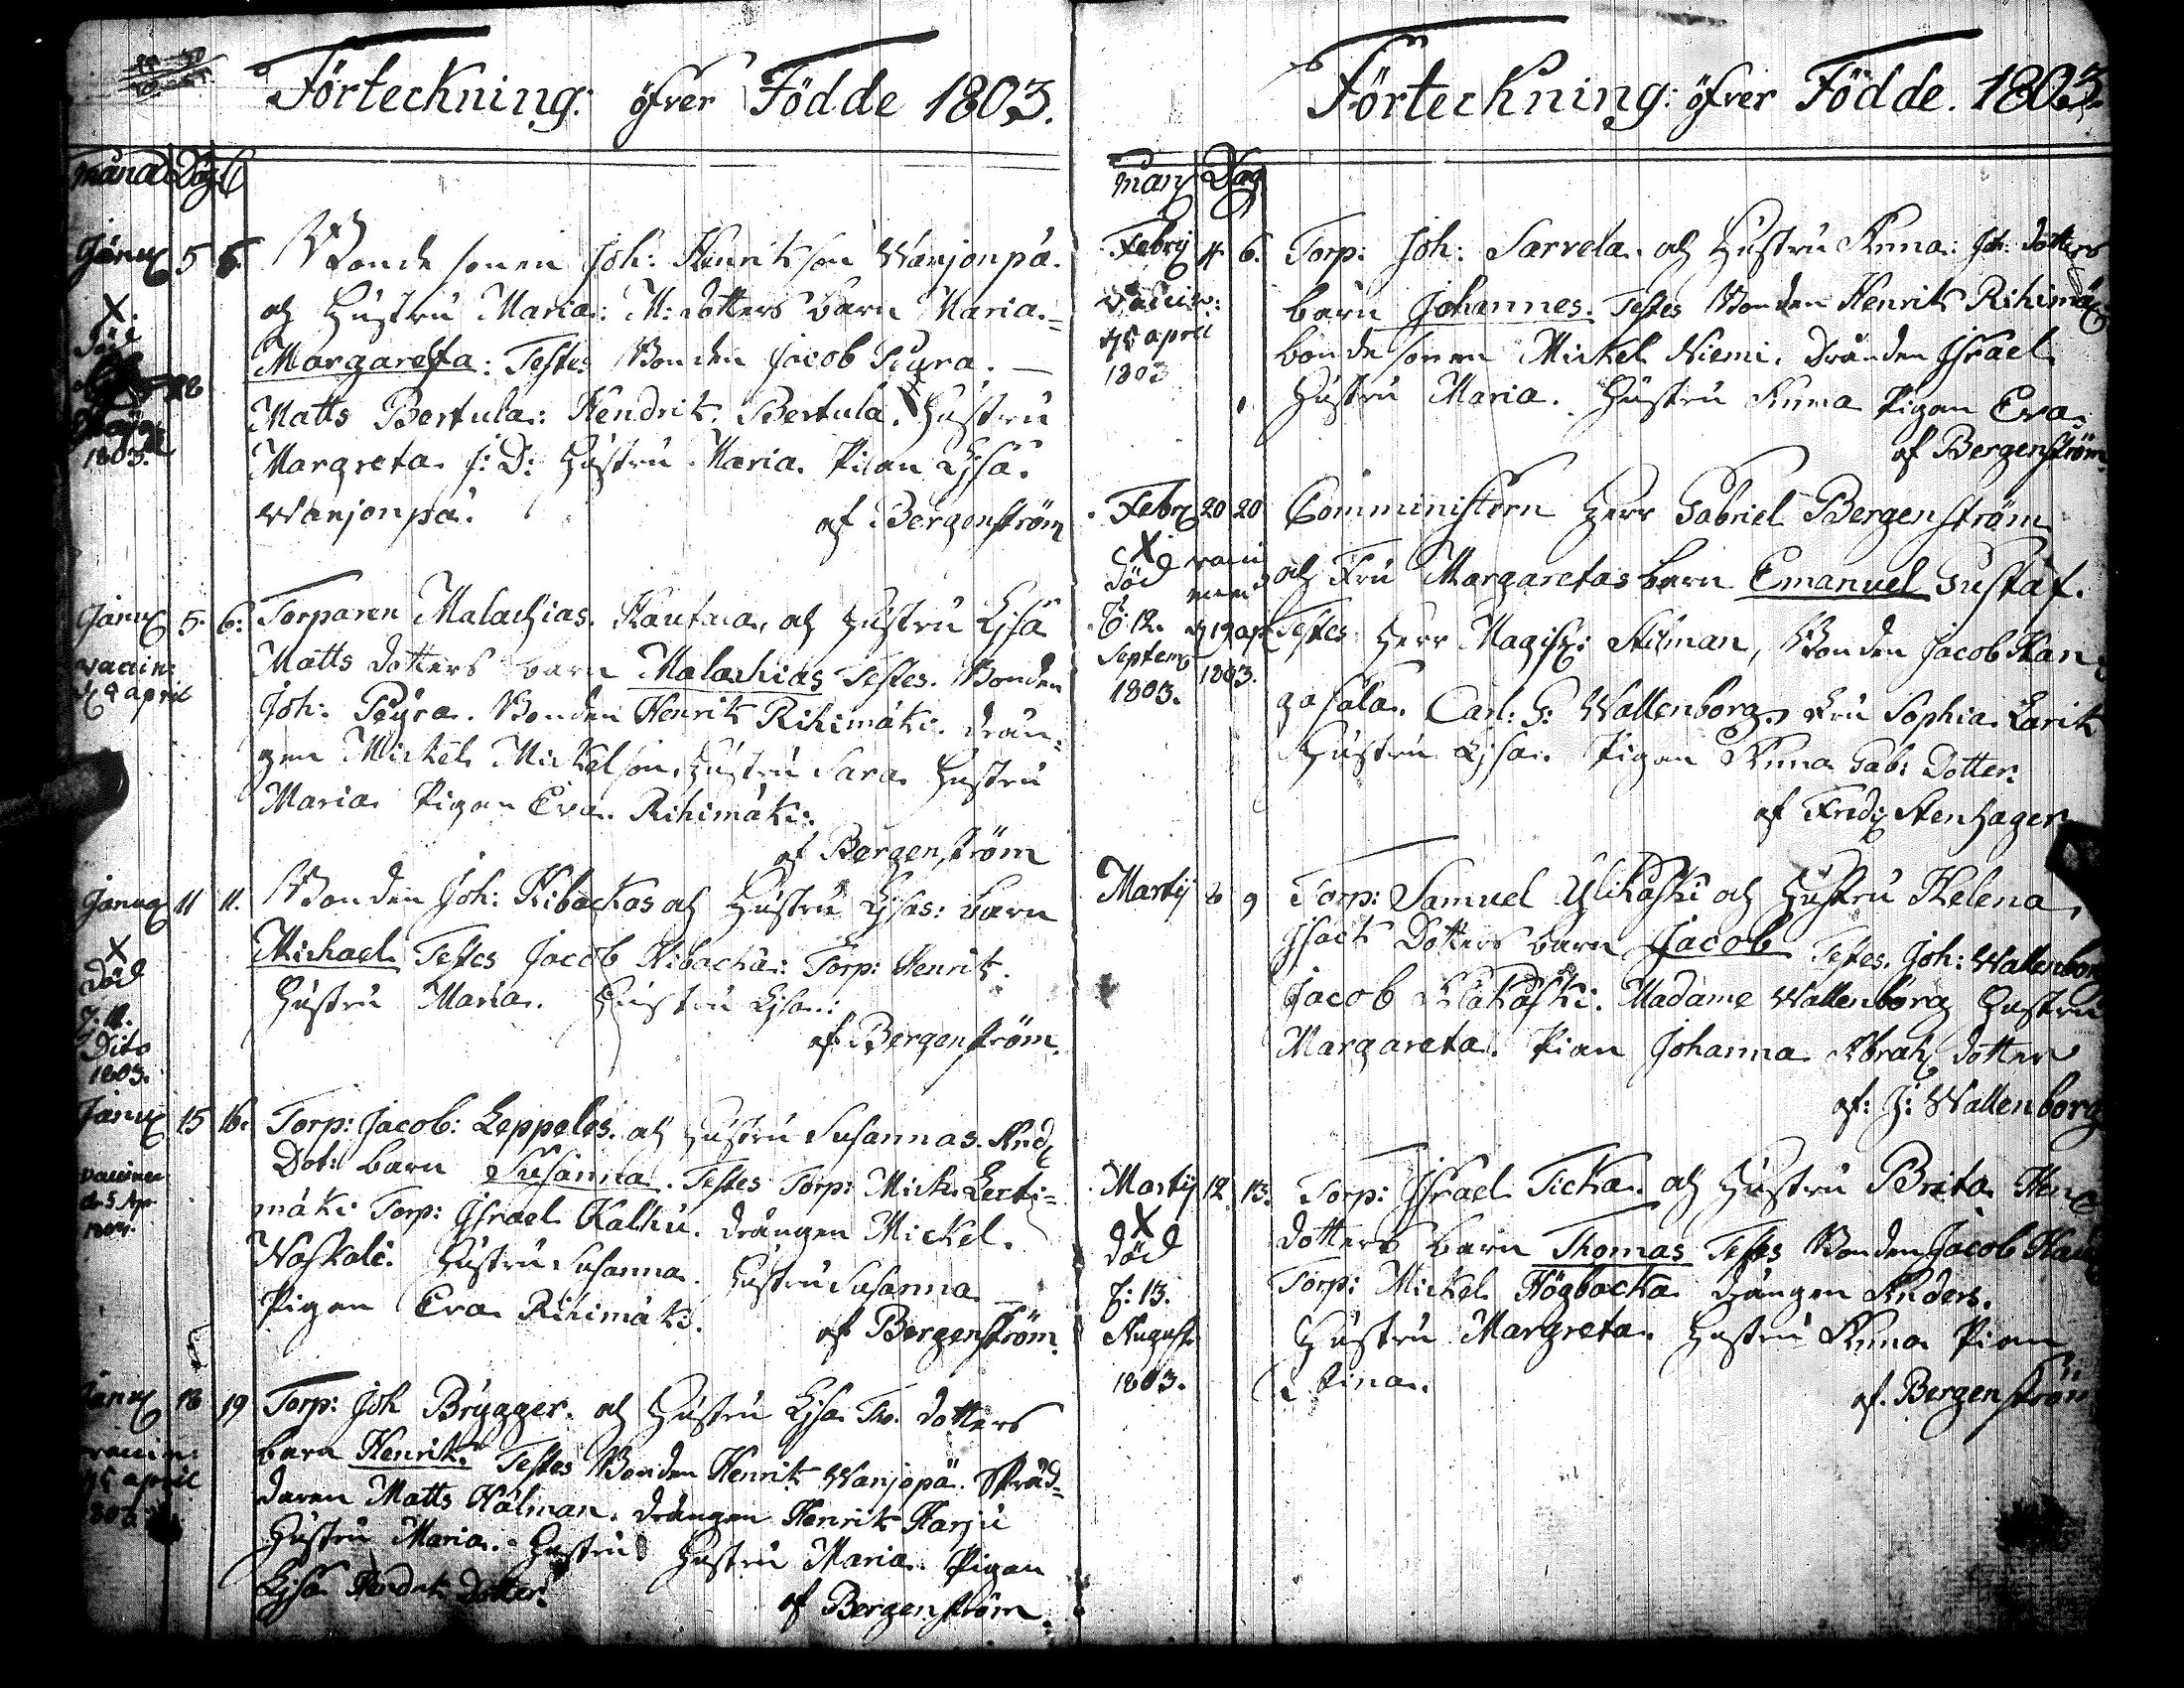 Förteckning: öfver Födde 1803.
Månad Dag
Janu 5 6. Bonde sonen Joh: Henrikson Warjonpä.
X. och Hustru Maria: M: dotters barn Maria.
död Margareta: Testes Bonden Jacob Peyra.
Matts Bertula: Hendrik Bertula. Hustru
1803. Margreta J: D: Hustru Maria. Pigan Lisa.
Warjonpä.
af Bergenström
Janu 5. 6: Torparen Malachias. Kautma, och Hustru Lisa
vaccin: Matts dotters barn Malachias Testes. Bonden
april Joh: Peyra. Bonden Henrik Rihimäki. drän-
gen Mickel Mickelson, Hustru Sara Hustru
Maria Pigan Eva Rihimäki.
af Bergenström
Janu 11 11. Bonden Joh: Kibackas och Hustru Lisas: barn
X Michael Testes Jacob Kibacka: Torp: Henrik.
död Hustru Maria. Hustru Lisa:
Dito af Bergenström.
1803.
Janu 15 16. Torp: Jacob: Leppeles. och Hustru Susannas. And
Dot: barn Susanna. Testes Torp: Mick. Lecti-
mäki Torp: Israel Kalhu. drängen Mickel.
Noskale. Hustru Susanna. Hustru Susanna
Pigan Eva Rihimäki.
af Bergenström.
Janu 18 19 Torp: Joh Brygger. och Hustru Lisa Tho. dotters
vaccin: barn Henrik. Testes Bonden Henrik Warjopä. Skräd-
april daren Matts Kalman. drängen Henrik Harju
Hustru Maria. Hustru Hustru Maria. Pigan
Lisa Hendr dotter.
af Bergenström.
Förteckning: öfver Födde. 1803.
Mån Dag
Febry 4. 6. Torp: Joh: Sarvela. och Hustru Anna: Joh: dotters
vaccin: barn Johannes. Testes Bonden Henrik Rihimäk
april bonde sonen Mickel Niemi. drängen Israel
1803 Hustru Maria. Hustru Anna Pigan Eva
af Bergenström.
Febr 20 20 Comministern Herr Gabriel Bergenström
X
död och Fru Margaretas barn Emanuel Gustaf.
d: 12. Testes Herr Magist: Ahlman, Bonden Jacob Kan
Septem 1803. gasala. Carl: G: Wallenborg. Fru Sophia Carik
1803. Hustru Lisa. Pigan Anna Gab: Dotter:
af Fredr Stenhager
Martij 8 9 Torp: Samuel Ylikoski och Hustru Helena,
Isack Dotters barn Jacob Testes. Joh: Wallenborg
Jacob Alakoski. Madame Wallenborg Hustru
Margareta. Pigan Johanna Abrah dotter
af: J: Wallenborg
Martij 12. 13. Torp: Israel Ticka. och Hustru Brita Hen
X
död dotters barn Thomas Testes Bonden Jacob Kan
d: 13. Torp: Mickel Högbacka drängen Anders.
August Hustru Margreta. Hustru Anna Pigan
1803. Stina.
af. Bergenström